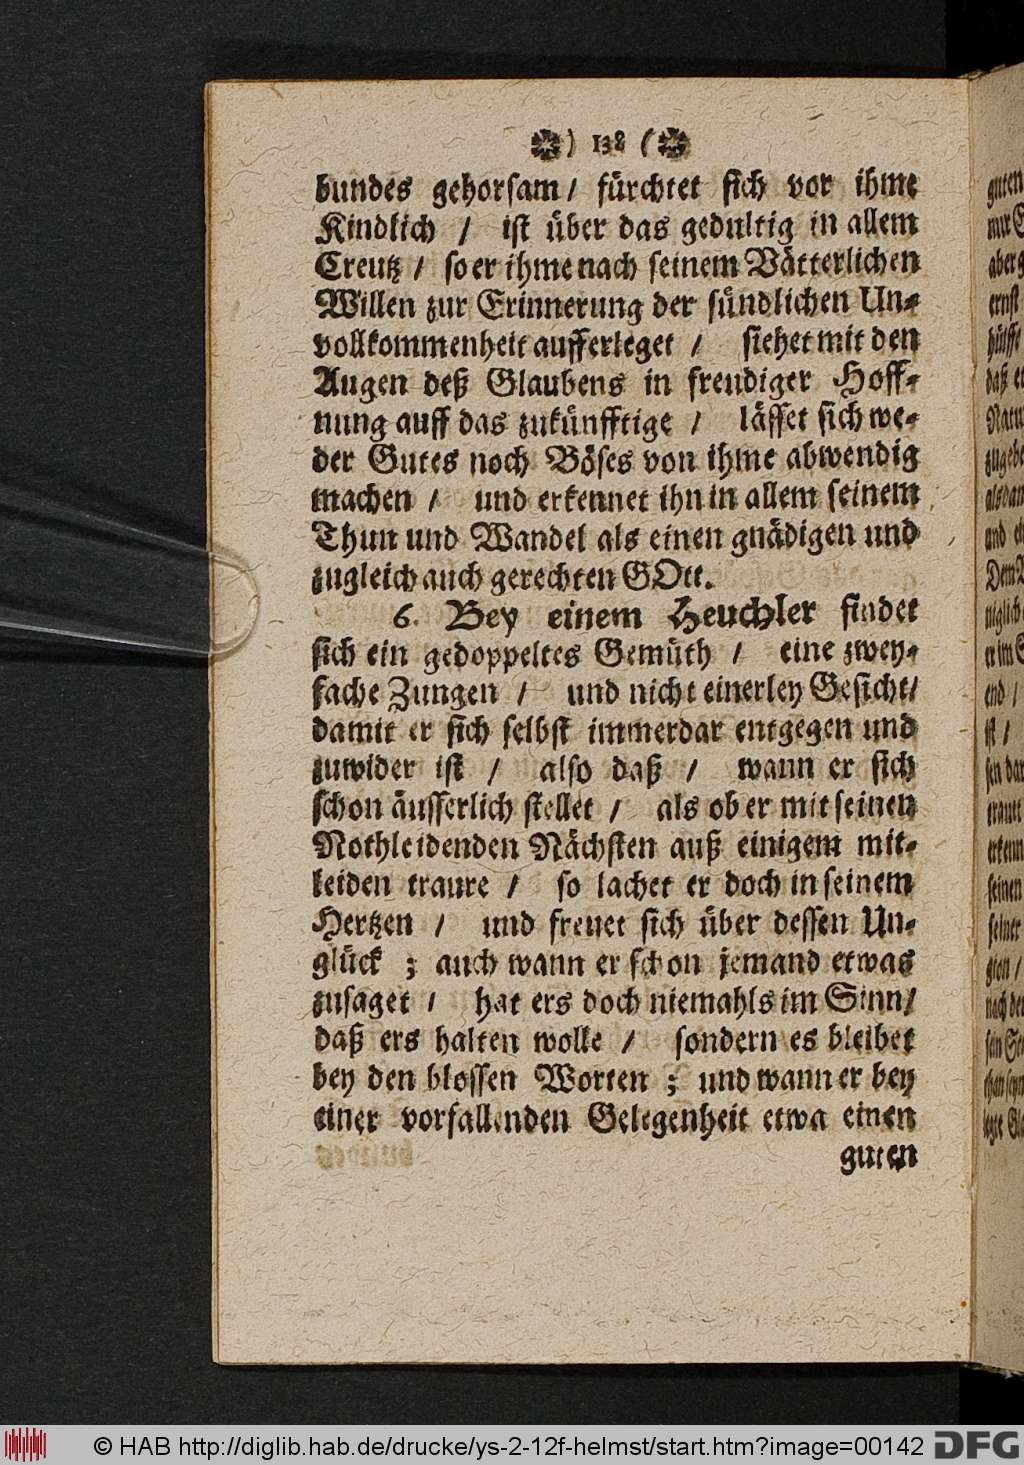 ) 138 (
bundes gehorsam / fürchtet sich vor ihme
Kindlich / ist über das gedultig in allem
Creutz / so er ihme nach seinem Vätterlichen
Willen zur Erinnerung der sündlichen Un-
vollkommenheit aufferleget / siehet mit den
Augen deß Glaubens in freudiger Hoff-
nung auff das zukünfftige / lässet sich we-
der Gutes noch Böses von ihme abwendig
machen / und erkennet ihn in allem seinem
Thun und Wandel als einen gnädigen und
zugleich auch gerechten GOtt.
6. Bey einem Heuchler findet
sich ein gedoppeltes Gemüth / eine zwey-
fache Zungen / und nicht einerley Gesicht/
damit er sich selbst immerdar entgegen und
zuwider ist / also daß / wann er sich
schon äusserlich stellet / als ob er mit seinen
Nothleidenden Nächsten auß einigem mit-
leiden traure / so lachet er doch in seinem
Hertzen / und freuet sich über dessen Un-
glück ; auch wann er schon jemand etwas
zusaget / hat ers doch niemahls im Sinn/
daß ers halten wolle / sondern es bleibet
bey den blossen Worten ; und wann er bey
einer vorfallenden Gelegenheit etwa einen
guten
© HAB http://diglib.hab.de/drucke/ys-2-12f-helmst/start.htm?image=00142
DFG